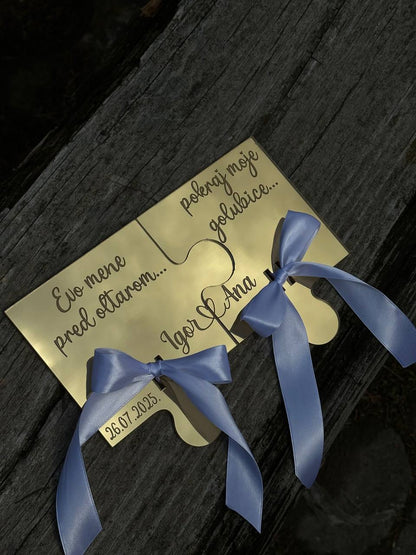 Evo mene
pred oltarom...
pokraj moje
golubice...
Igor Ana
26.07.2025.